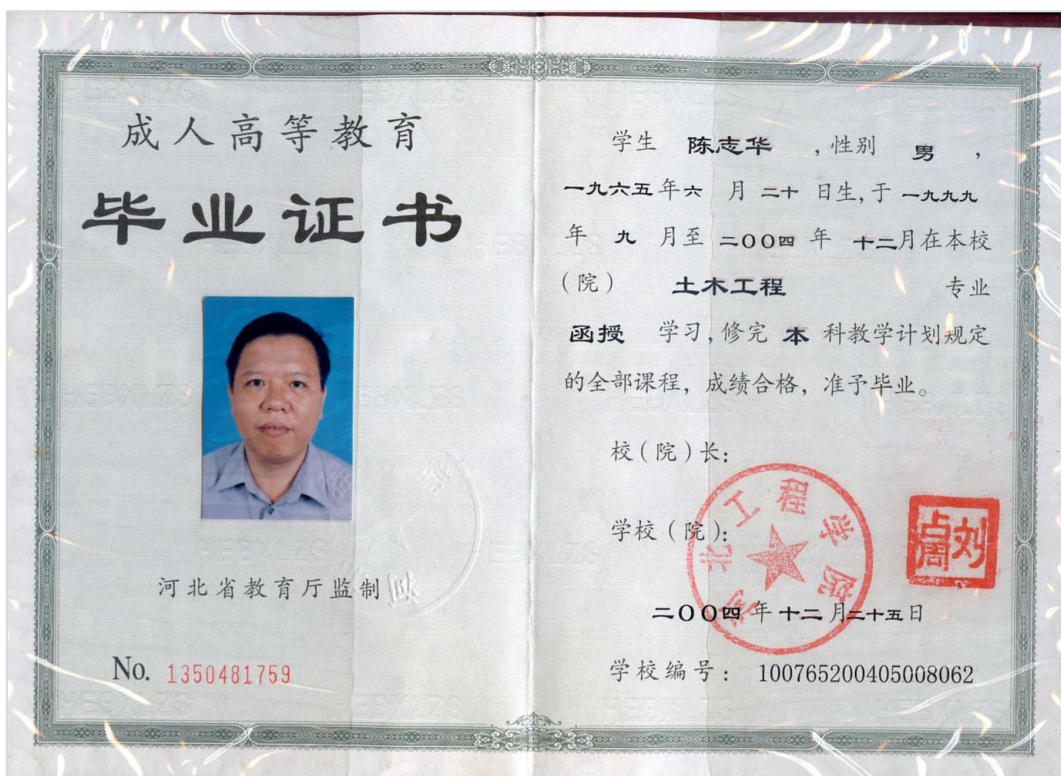 成人高等教育
毕业证书
河北省教育厅监制
No. 1350481759
学生 陈志华 ,性别 男 ,
一九六五年六 月 二十 日生,于 一九九九
年 九 月至 二〇〇四 年 十二月在本校
(院) 土木工程 专业
函授 学习,修完 本 科教学计划规定
的全部课程，成绩合格，准予毕业。
校(院)长:
学校(院):
河北工程学院
二〇〇四年十二月二十五日
学校编号: 100765200405008062